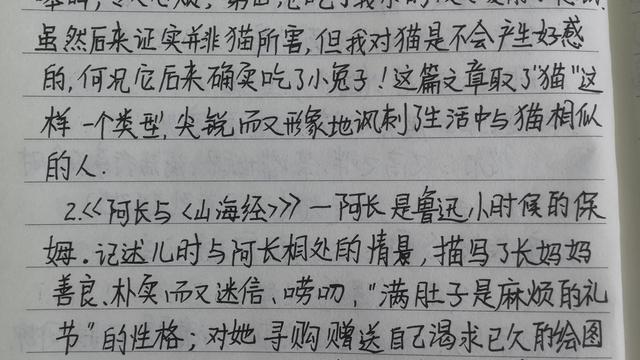 虽然后来证实并非猫所害,但我对猫是不会产生好感
的,何况它后来确实吃了小兔子!这篇文章取了"猫"这
样一个类型,尖锐而又形象地讽刺了生活中与猫相似
的人.
2.《阿长与〈山海经〉》—阿长是鲁迅小时候的保
姆.记述儿时与阿长相处的情景,描写了长妈妈
善良、朴实而又迷信、唠叨、"满肚子是麻烦的礼
节"的性格;对她寻购赠送自己渴求已久的绘图